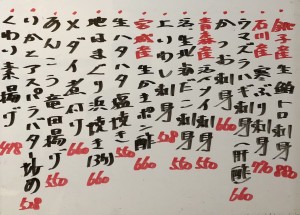 銚子産生鮪トロ刺身 880
石川産寒ぶり刺身 770
ウマズラハギ刺身(肝醤) 660
かつお刺身 660
青森産活ソイ刺身 550
活〆生タコ刺身 550
上いわし刺身 508
宮城産生かキポン酢 660
生ハタハタ塩焼き 550
地はまぐり浜焼き(3ヶ) 660
メダイ煮付け 660
あんこう竜田揚げ 550
いかとアスパラバター炒め 508
くわい素揚げ 418